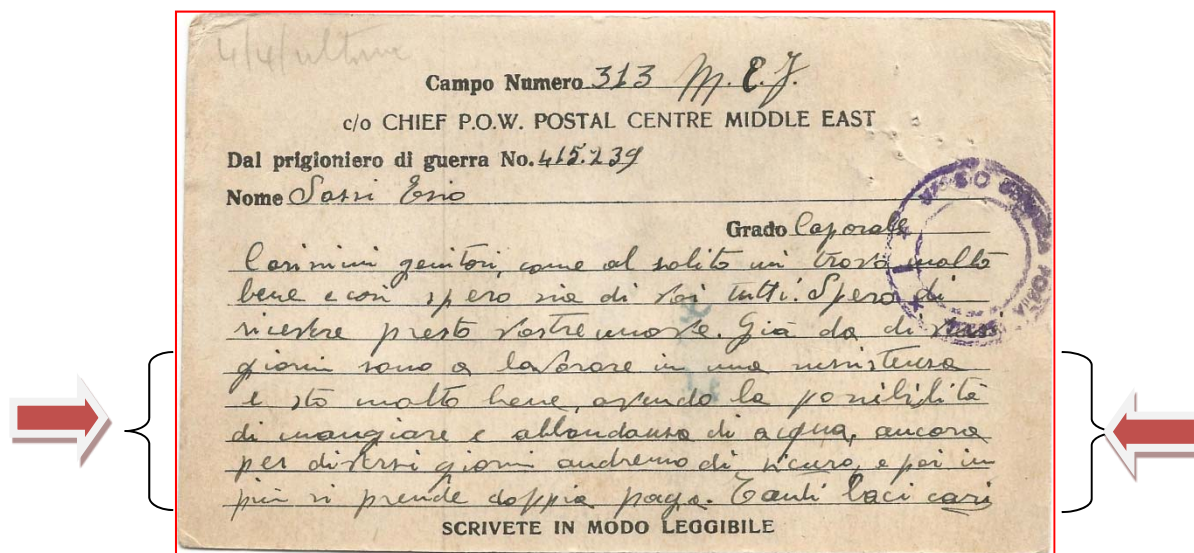 4/4/ultima
Campo Numero 313 M.E.F.
c/o CHIEF P.O.W. POSTAL CENTRE MIDDLE EAST
Dal prigioniero di guerra No. 415.239
Nome Sassi Ezio
Grado Caporale
Carissimi genitori, come al solito mi trovo molto
bene e così spero sia di voi tutti. Spero di
ricevere presto vostre nuove. Già da diversi
giorni sono a lavorare in una sussistenza
e sto molto bene, avendo la possibilità
di mangiare e abbondanza di acqua, ancora
per diversi giorni andremo di sicuro, e poi in
più si prende doppia paga. Tanti baci cari
SCRIVETE IN MODO LEGGIBILE